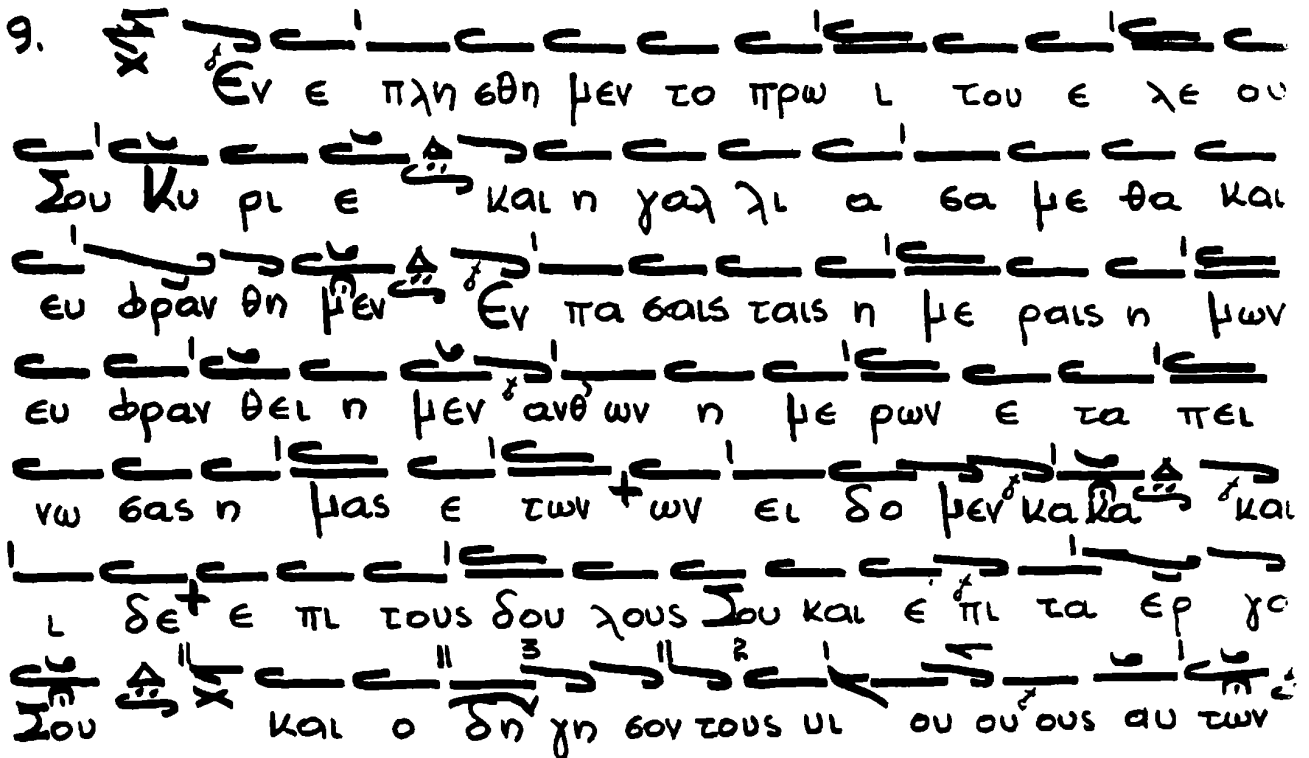 9. Εν ε πλη σθη μεν το πρω ι του ε λε ου
Σου Κυ ρι ε και η γαλ λι α σα με θα και
ευ φραν θη μεν Εν πα σαις ταις η με ραις η μων
ευ φραν θει η μεν ανθ ων η με ρων ε τα πει
νω σας η μας ε των ων ει δο μεν κα κα και
ι δε ε πι τους δου λους Σου και ε πι τα ερ γα
Σου και ο δη γη σον τους υι ου ου ους αυ των